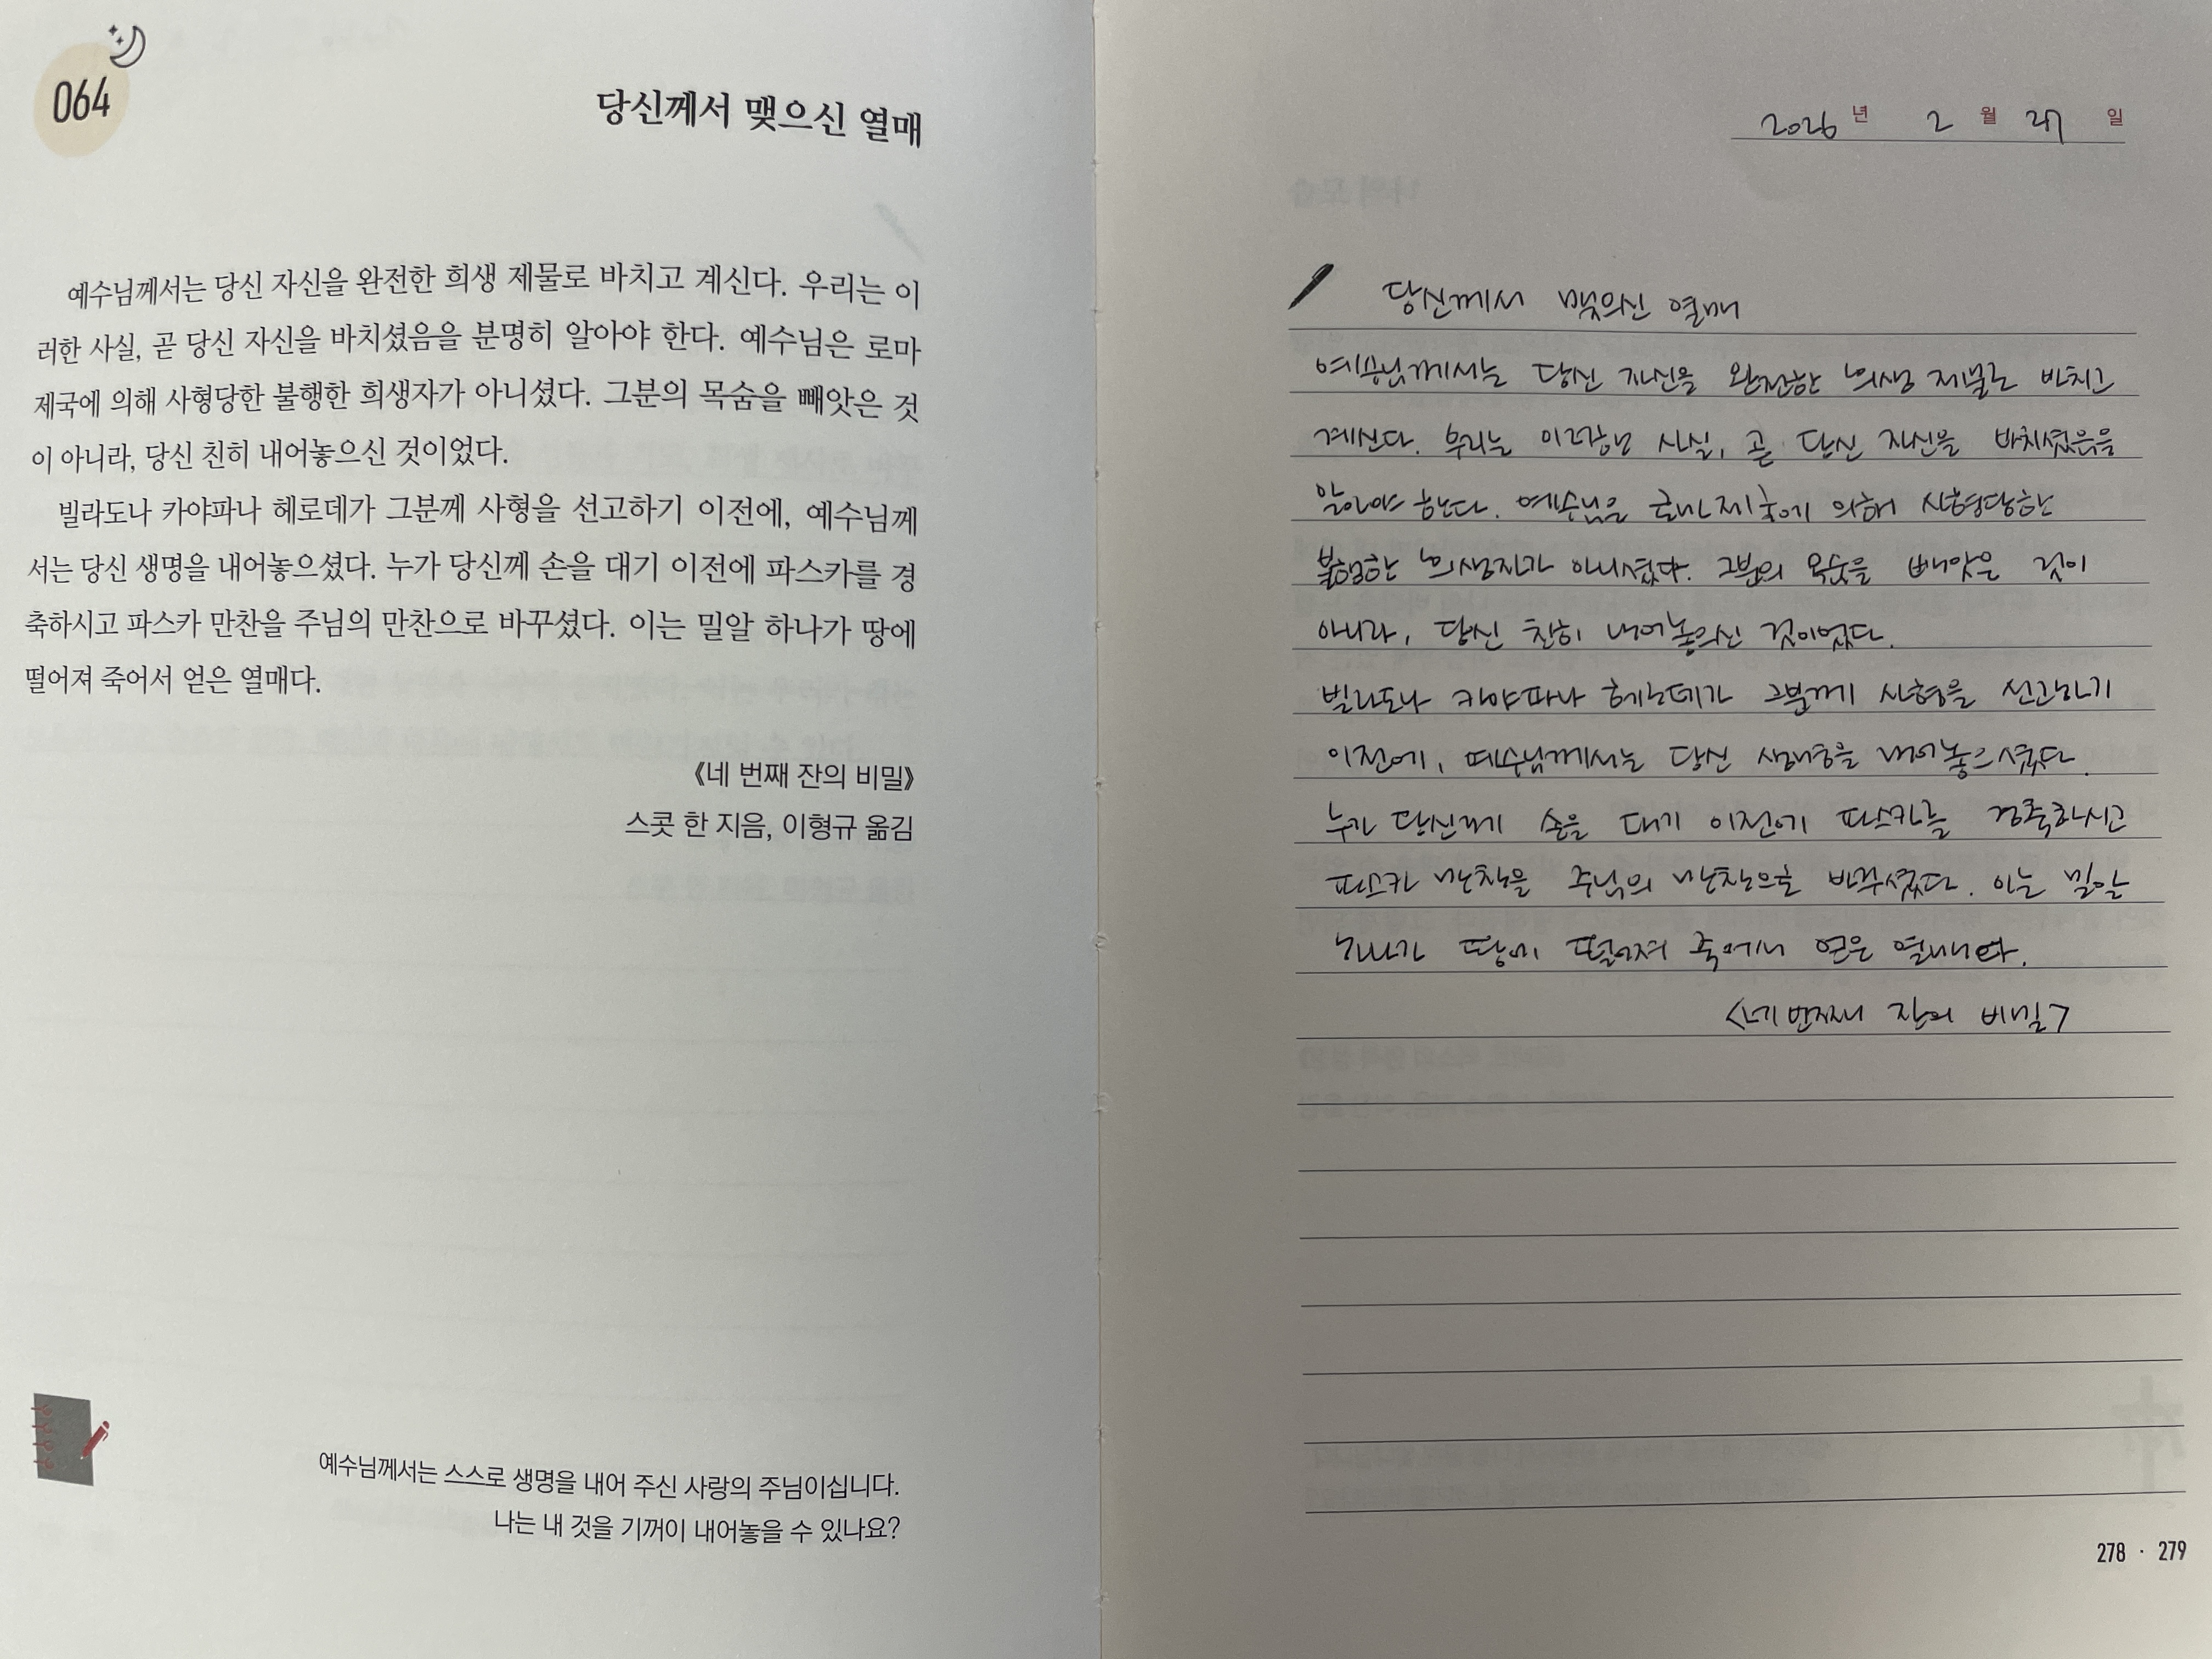 064
당신께서 맺으신 열매
예수님께서는 당신 자신을 완전한 희생 제물로 바치고 계신다. 우리는 이
러한 사실, 곧 당신 자신을 바치셨음을 분명히 알아야 한다. 예수님은 로마
제국에 의해 사형당한 불행한 희생자가 아니셨다. 그분의 목숨을 빼앗은 것
이 아니라, 당신 친히 내어놓으신 것이었다.
빌라도나 카야파나 헤로데가 그분께 사형을 선고하기 이전에, 예수님께
서는 당신 생명을 내어놓으셨다. 누가 당신께 손을 대기 이전에 파스카를 경
축하시고 파스카 만찬을 주님의 만찬으로 바꾸셨다. 이는 밀알 하나가 땅에
떨어져 죽어서 얻은 열매다.
《네 번째 잔의 비밀》
스콧 한 지음, 이형규 옮김
예수님께서는 스스로 생명을 내어 주신 사랑의 주님이십니다.
나는 내 것을 기꺼이 내어놓을 수 있나요?
2026년 2월 27일
당신께서 맺으신 열매
예수님께서는 당신 자신을 완전한 희생 제물로 바치고
계신다. 우리는 이러한 사실, 곧 당신 자신을 바치셨음을
알아야 한다. 예수님은 로마 제국에 의해 사형당한
불행한 희생자가 아니셨다. 그분의 목숨을 빼앗은 것이
아니라, 당신 친히 내어놓으신 것이었다.
빌라도나 카야파나 헤로데가 그분께 사형을 선고하기
이전에, 예수님께서는 당신 생명을 내어놓으셨다.
누가 당신께 손을 대기 이전에 파스카를 경축하시고
파스카 만찬을 주님의 만찬으로 바꾸셨다. 이는 밀알
하나가 땅에 떨어져 죽어서 얻은 열매다.
<네 번째 잔의 비밀>
278 · 279